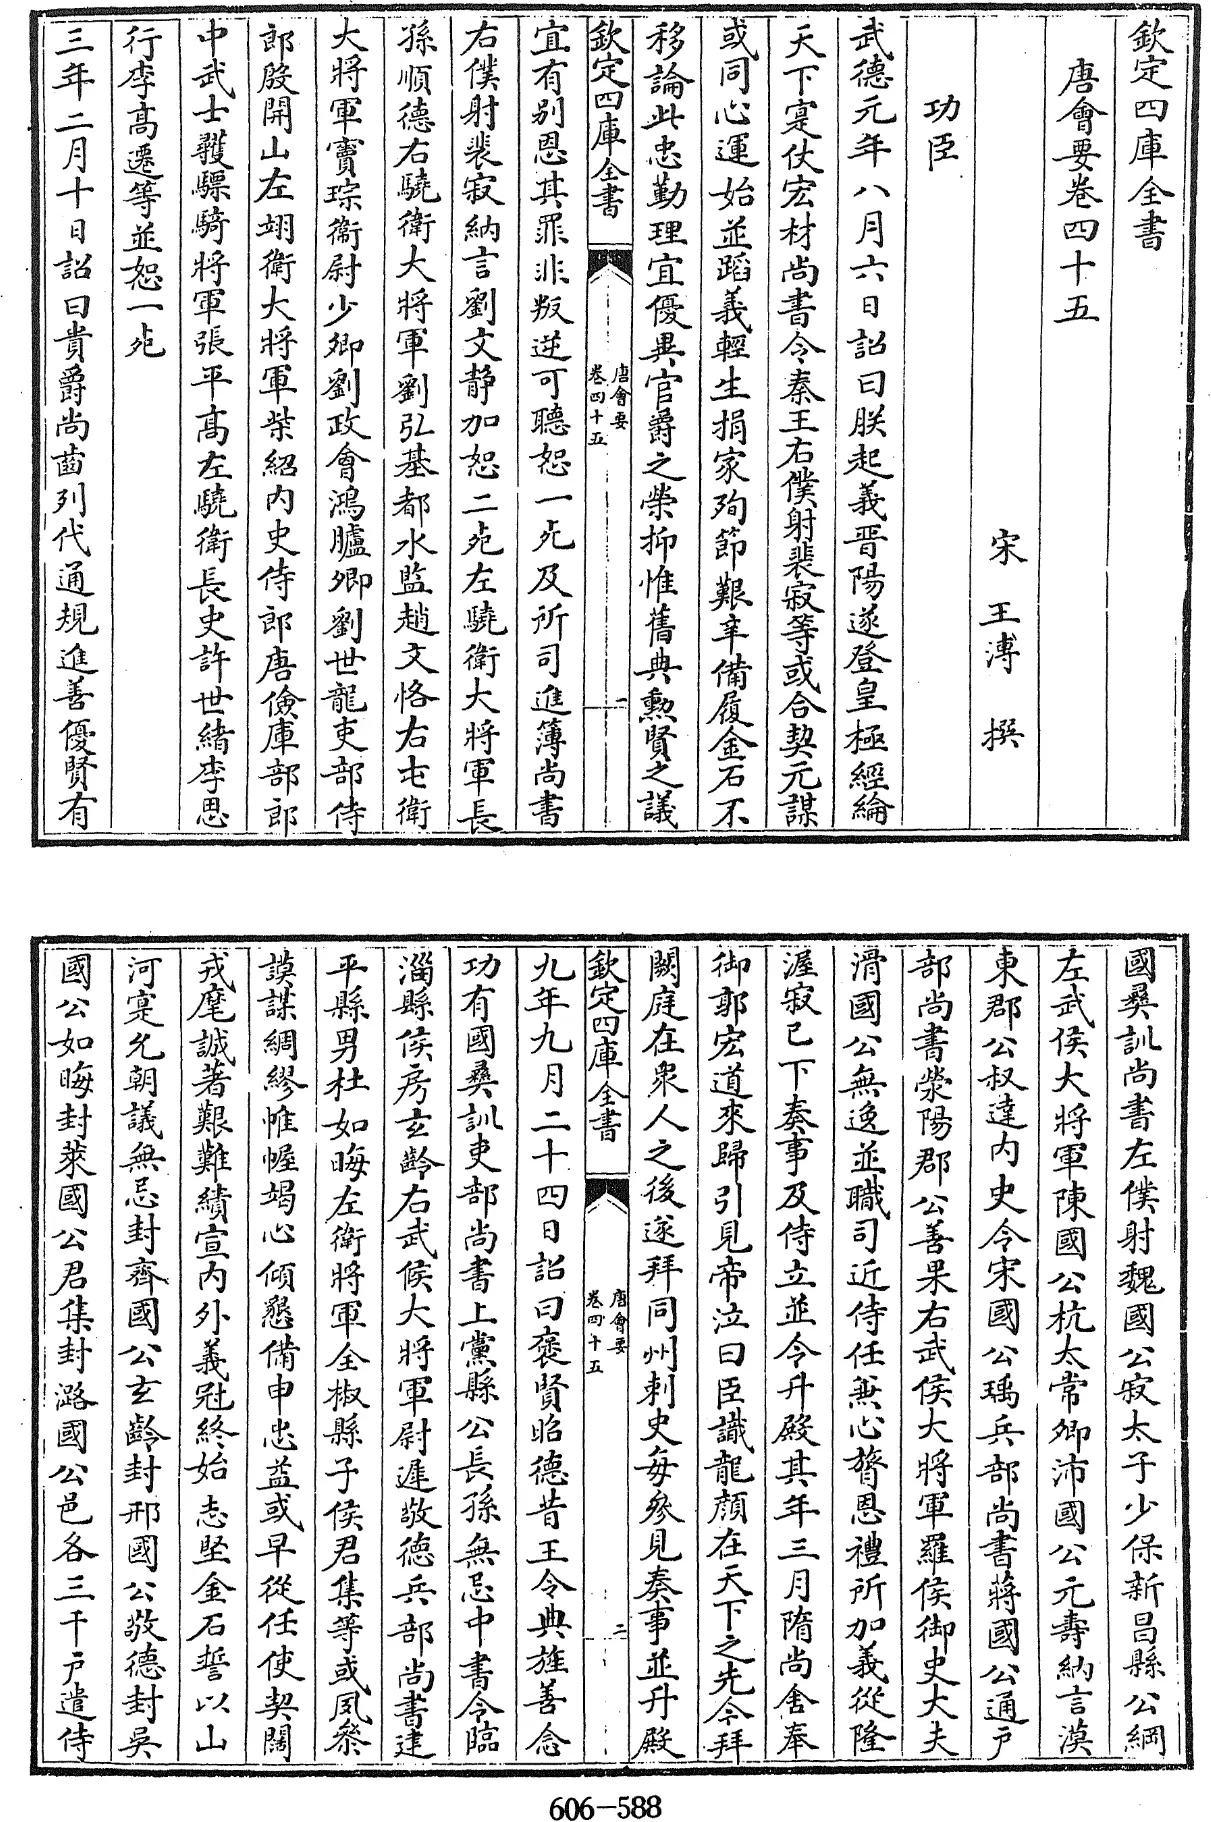 欽定四庫全書
唐會要卷四十五
宋 王溥 撰
功臣
武德元年八月六日詔曰朕起義晋陽遂登皇極經綸
天下寔仗宏材尚書令秦王右僕射裴寂等或合契元謀
或同心運始並蹈義輕生捐家殉節艱辛備履金石不
移論此忠勤理宜優異官爵之榮抑惟舊典勲賢之議
欽定四庫全書
唐會要
卷四十五
一
宜有别恩其罪非叛逆可聽恕一死及所司進簿尚書
右僕射裴寂納言劉文静加恕二死左驍衛大將軍長
孫順德右驍衛大將軍劉弘基都水監趙文恪右屯衛
大將軍竇琮衞尉少卿劉政會鴻臚卿劉世龍吏部侍
郎殷開山左翊衛大將軍柴紹内史侍郎唐儉庫部郎
中武士彠驃騎將軍張平髙左驍衛長史許世緒李思
行李髙遷等並恕一死
三年二月十日詔曰貴爵尚齒列代通規進善優賢有
國彞訓尚書左僕射魏國公寂太子少保新昌縣公綱
左武侯大將軍陳國公杭太常卿沛國公元壽納言漢
東郡公叔達内史令宋國公瑀兵部尚書蔣國公通户
部尚書滎陽郡公善果右武侯大將軍羅侯御史大夫
滑國公無逸並職司近侍任兼心膂恩禮所加義從隆
渥寂已下奏事及侍立並令升殿其年三月隋尚舍奉
御郭宏道來歸引見帝泣曰臣識龍顔在天下之先今拜
闕庭在衆人之後遂拜同州刺史每參見奏事並升殿
欽定四庫全書
唐會要
卷四十五
二
九年九月二十四日詔曰褒賢昭德昔王令典旌善念
功有國彞訓吏部尚書上黨縣公長孫無忌中書令臨
淄縣侯房玄齡右武侯大將軍尉遲敬德兵部尚書建
平縣男杜如晦左衛將軍全椒縣子侯君集等或夙叅
謨謀綢繆帷幄竭心傾懇備申忠益或早從任使契闊
戎麾誠著艱難績宣内外義冠終始志堅金石誓以山
河寔允朝議無忌封齊國公玄齡封邢國公敬德封吳
國公如晦封萊國公君集封潞國公邑各三千户遣侍
606-588